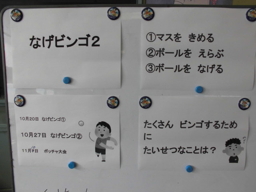 なげビンゴ2
①マスを きめる
②ボールを えらぶ
③ボールを なげる
10月20日 なげビンゴ①
10月27日 なげビンゴ②
ボッチャ大会
たくさん ビンゴするため
に
たいせつなことは？